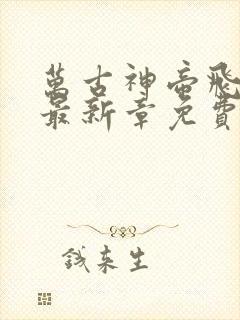 萬古神帝飛
最新章免費
錢來生